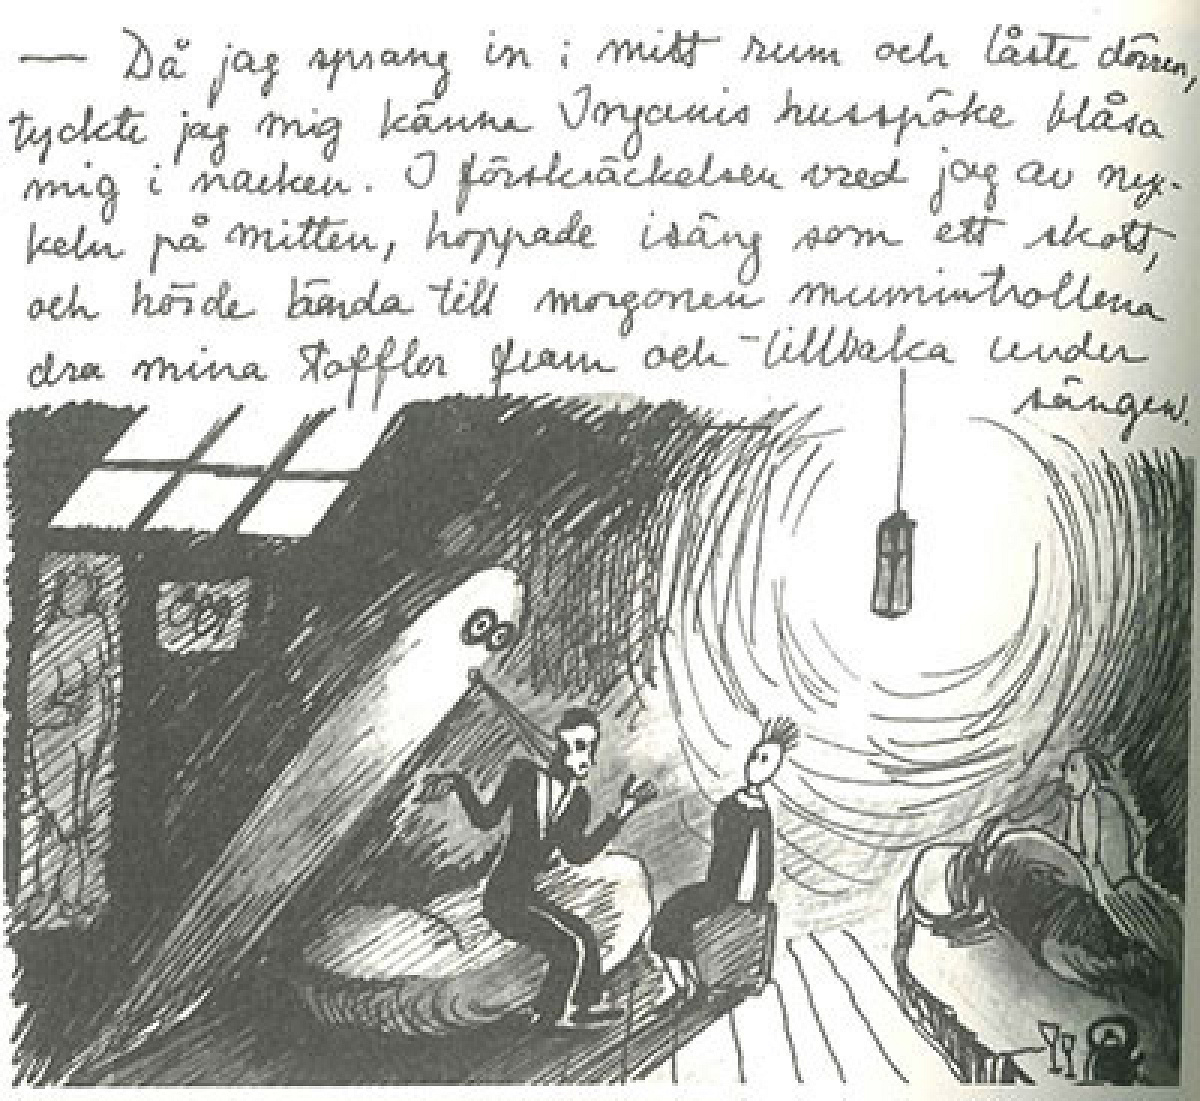 — Då jag sprang in i mitt rum och låste dörren,
tyckte jag mig känna Inganis husspöke blåsa
mig i nacken. I förskräckelsen vred jag av nyc-
keln på mitten, hoppade isäng som ett skott,
och hörde ända till morgonen mumintrollena
dra mina tofflor fram och tillbaka under
sängen.